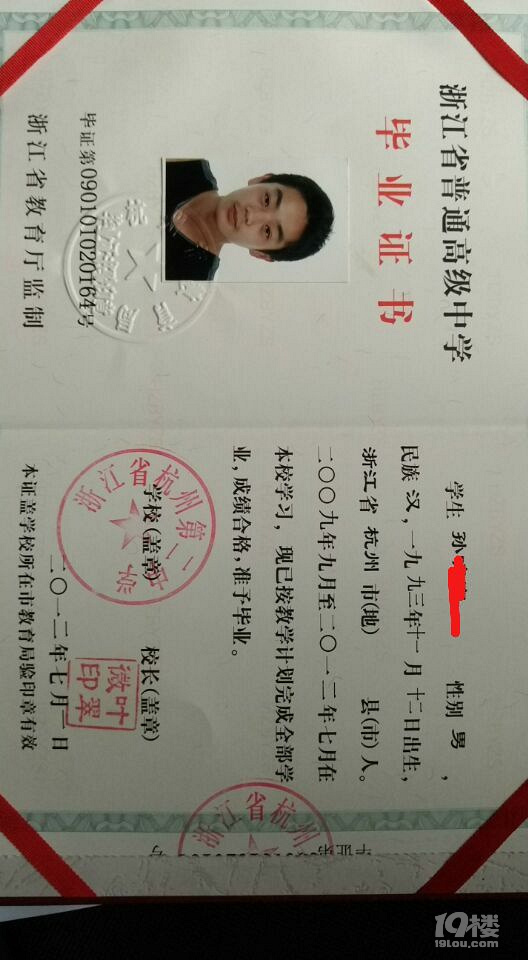 浙江省普通高级中学
毕业证书
毕证第090101020164号
浙江省教育厅监制
学生 孙 性别 男，
民族 汉，一九九三年十一月十二日出生，
浙江省 杭州 市(地) 县(市)人。
二〇〇九年九月至二〇一二年七月在
本校学习，现已按教学计划完成全部学
业，成绩合格，准予毕业。
学校(盖章) 校长(盖章)
浙江省杭州第一中学
叶翠微印
二〇一二年七月一日
本证盖学校所在市教育局验印章有效
浙江省杭州
毕证第
号
19楼
19lou.com